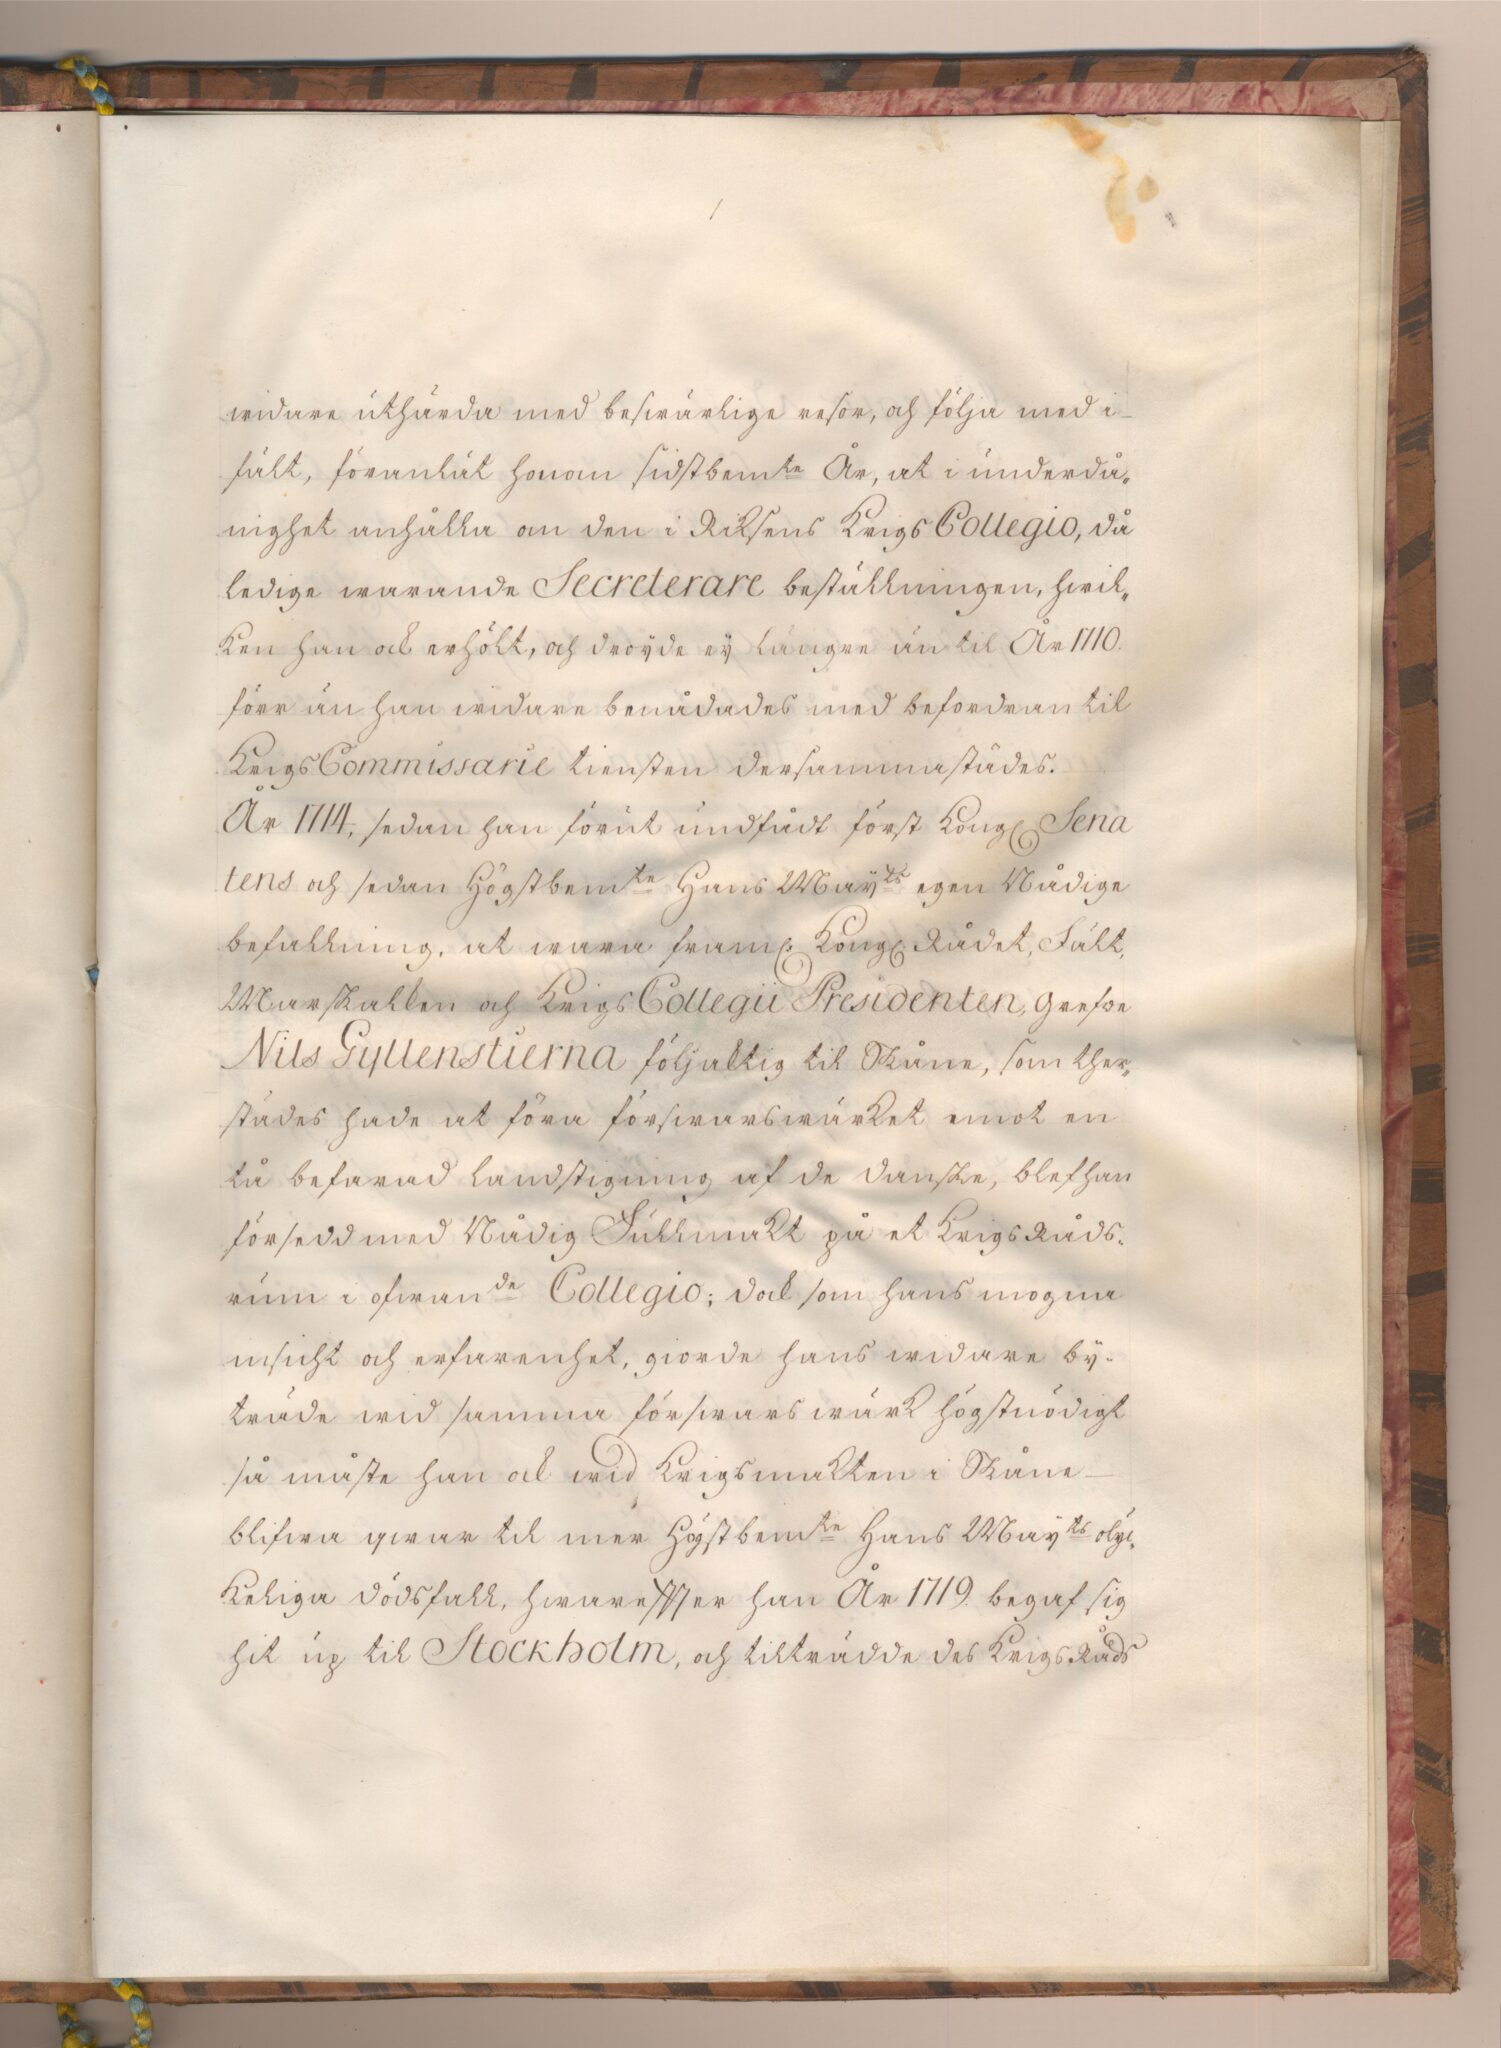 widare uthärda med beswärlige resor, och följa med i
fält, föranlät honom sidstbemte År, at i underdå„
nighet anhålla om den i Riksens Krigs Collegio, då
ledige warande Secreterare beställningen, hwil„
ken han ock erhölt, och dröyde ey längre än til År 1710.
förr än han widare benådades med befordran til
Krigs Commissarie tiensten dersammastädes.
År 1714, sedan han förut undfådt först Kongl. Sena
tens och sedan Högstbemte Hans Mayts egen Nådige
befallning, at wara framl. Kongl. Rådet, Fält,
Marskalken och Krigs Collegii Presidenten, Grefwe
Nils Gyllenstierna följaktig til Skåne, som ther„
städes hade at föra försvarswärket emot en
tå befarad landstigning af de danske, blef han
försedd med Nådig Fullmakt på et Krigs Råds„
rum i ofwande Collegio; dock som hans mogna
insicht och erfarenhet, giorde hans widare by„
träde wid samma förswarswärk högstnödigt
så måste han ock wid Krigsmakten i Skåne
blifwa qwar til mer Högstbemte Hans Mayts olyc„
keliga dödsfall, hwareffter han År 1719. begaf sig
hit up til Stockholm, och tillträdde des KrigsRåds